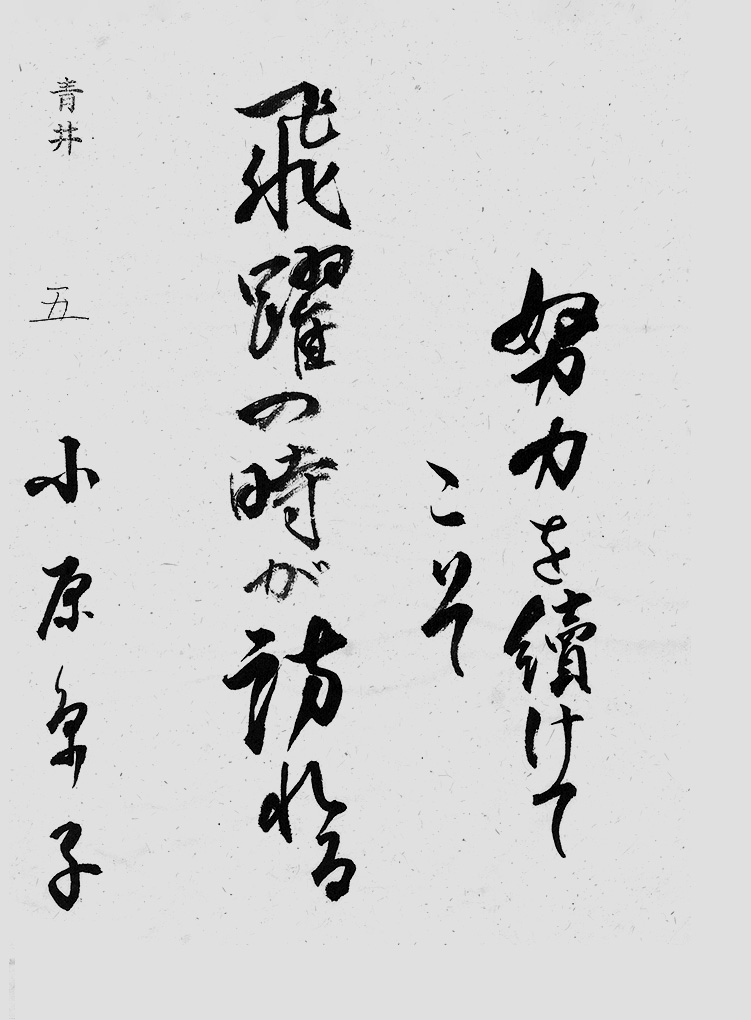 努力を續けて
こそ
飛躍の時が訪れる
青井 五 小原京子